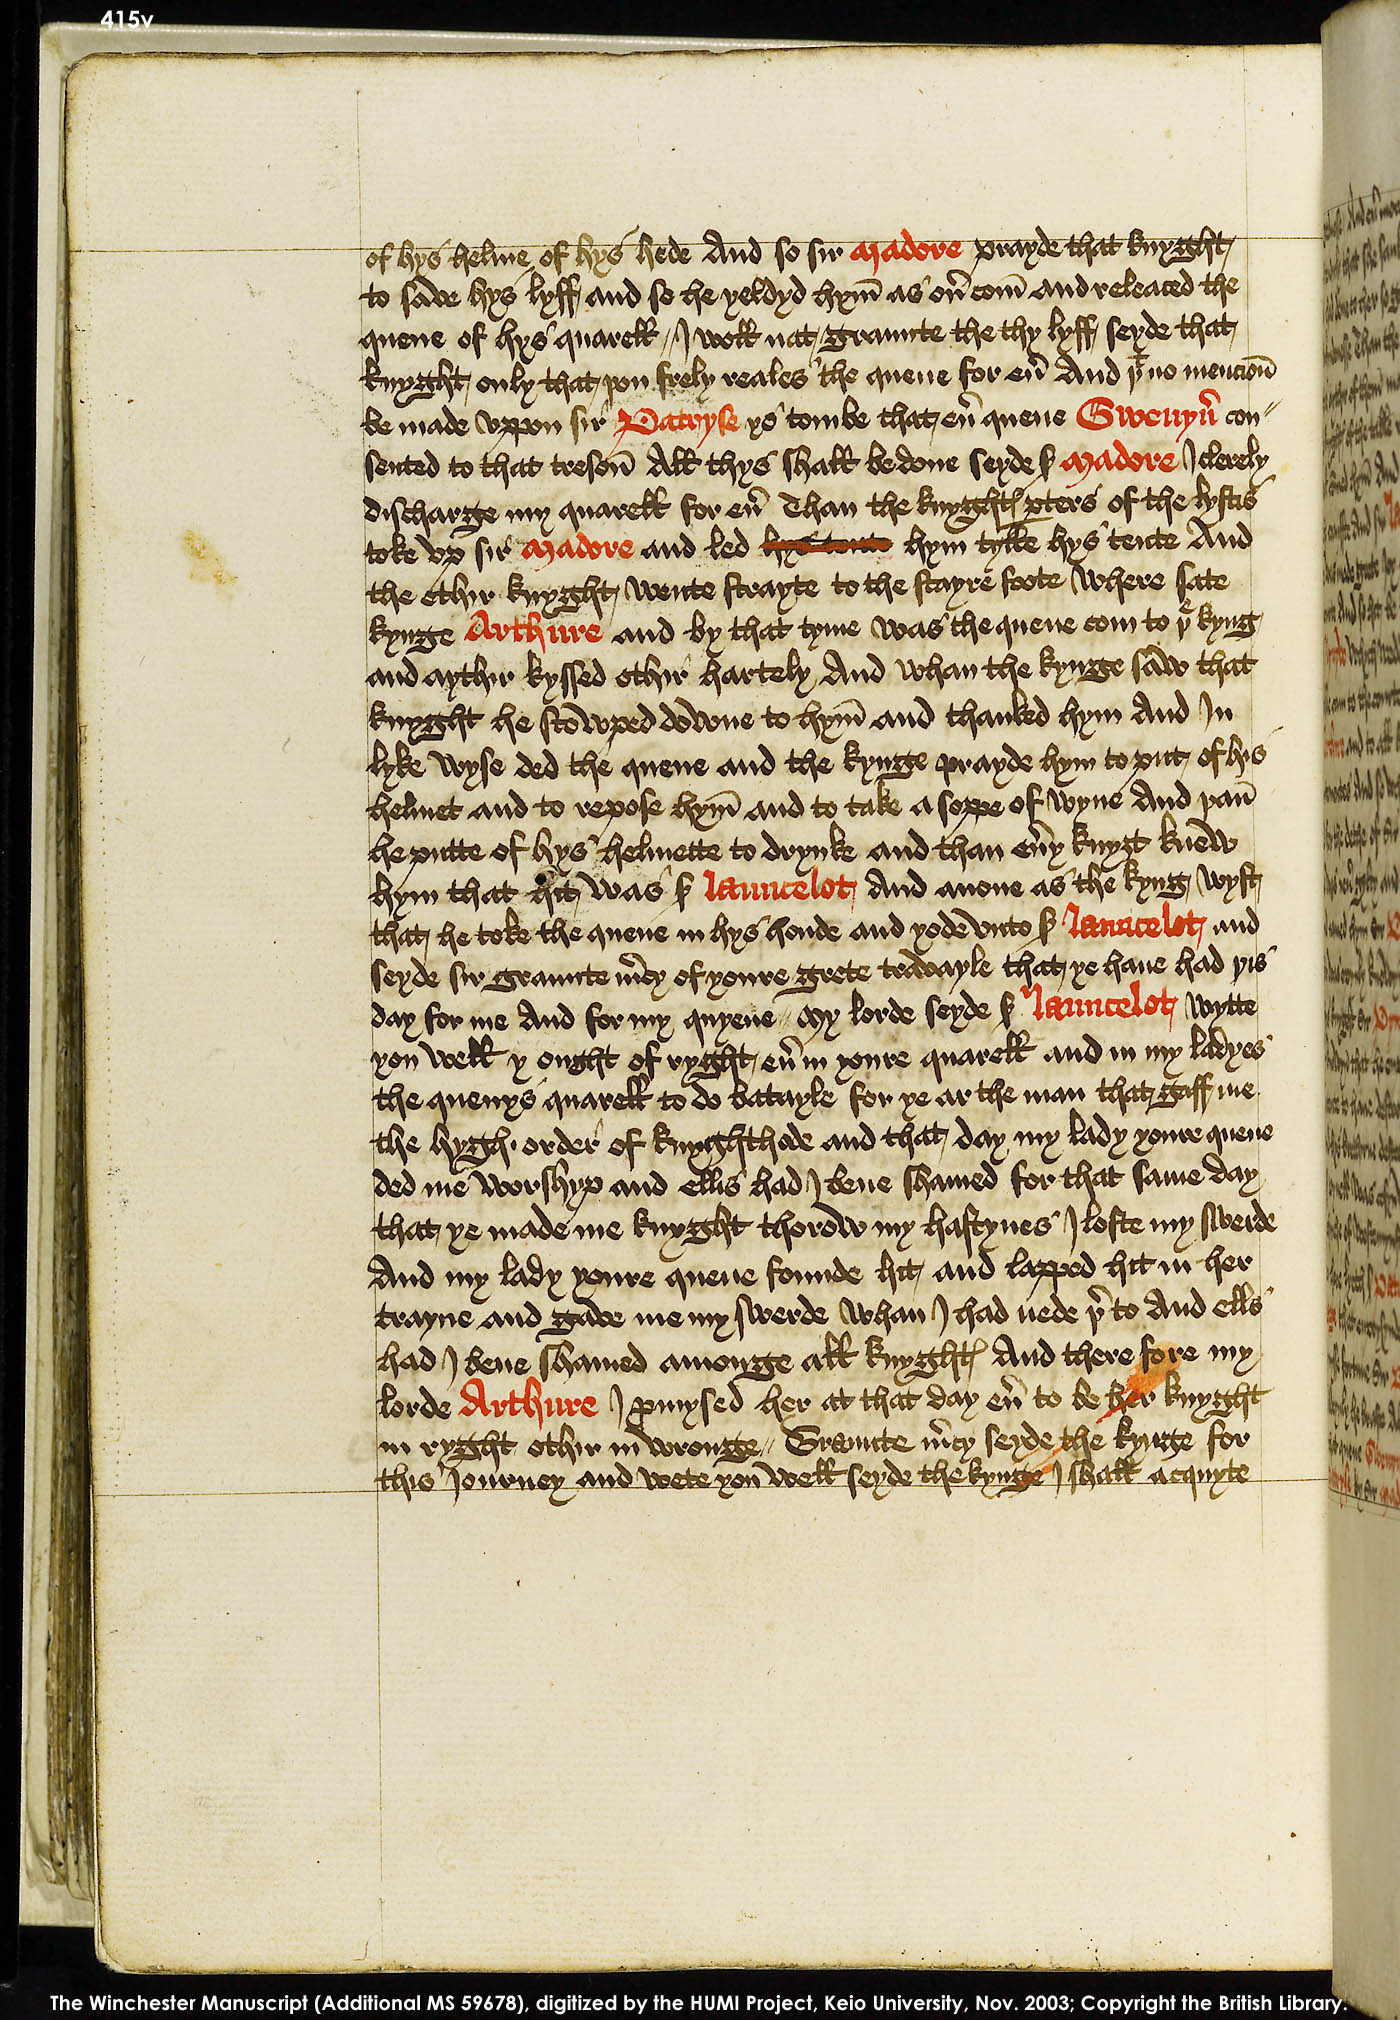 415v
of hys helme of hys hede And so sir Madore prayde that knyght
to save hys lyff and so he yeldyd hym̄ as ov̄com̄ and releaced the
quene of hys quarell // I woll nat graunte the thy lyff seyde that
knyght only that þou frely reales the quene for eū And þt no mencion̄
be made uppon sir Patryse ys tombe that eū quene Gwenyū con//
sented to that treson̄ All thys shall be done seyde sʳ Madore I clerely
discharge my quarell for eū Than the knyghtꝭ ꝑters of the lystis
toke up sir Madore and led hys tente hym tylle hys tente And
the othir knyght wente strayte to the stayre foote where sate
kynge Arthure and by that tyme was the quene com to þe kyng
and aythir kyssed othir hartely And whan the kynge saw that
knyght he stowped downe to hym̄ and thanked hym And In
lyke wyse ded the quene and the kynge prayde hym to put of his
helmet and to repose hym̄ and to take a soppe of wyne And þan̄
he putte of hys helmette to drynke and than eūy knyȝt knew
hym that hit was sʳ Launcelot And anone as the kyng wyst
that he toke the quene in hys honde and yode unto sʳ Launcelot and
seyde sir graunte m̄cy of youre grete travayle that ye have had þis
day for me And for my quyene // My lorde seyde sʳ Launcelot wytte
you well y ought of ryght eū in youre quarell and in my ladyes
the quenys quarell to do batayle for ye ar the man that gaff me
the hygh order of knyghthode and that day my lady youre quene
ded me worshyp and ellis had I bene shamed for that same day
that ye made me knyght thorow my hastynes I loste my swerde
And my lady youre quene founde hit and lapped hit in her
trayne and gave me my swerde whan I had nede þʳto And ells
had I bene shamed amonge all knyghtꝭ And there fore my
lorde Arthure I ꝓmysed her at that day eū to be her knyght
in ryght othir in wronge // Graunte m̄cy seyde the kynge for
this Journey and wete you well seyde the kynge I shall acquyte
The Winchester Manuscript (Additional MS 59678), digitized by the HUMI Project, Keio University, Nov. 2003; Copyright the British Library.